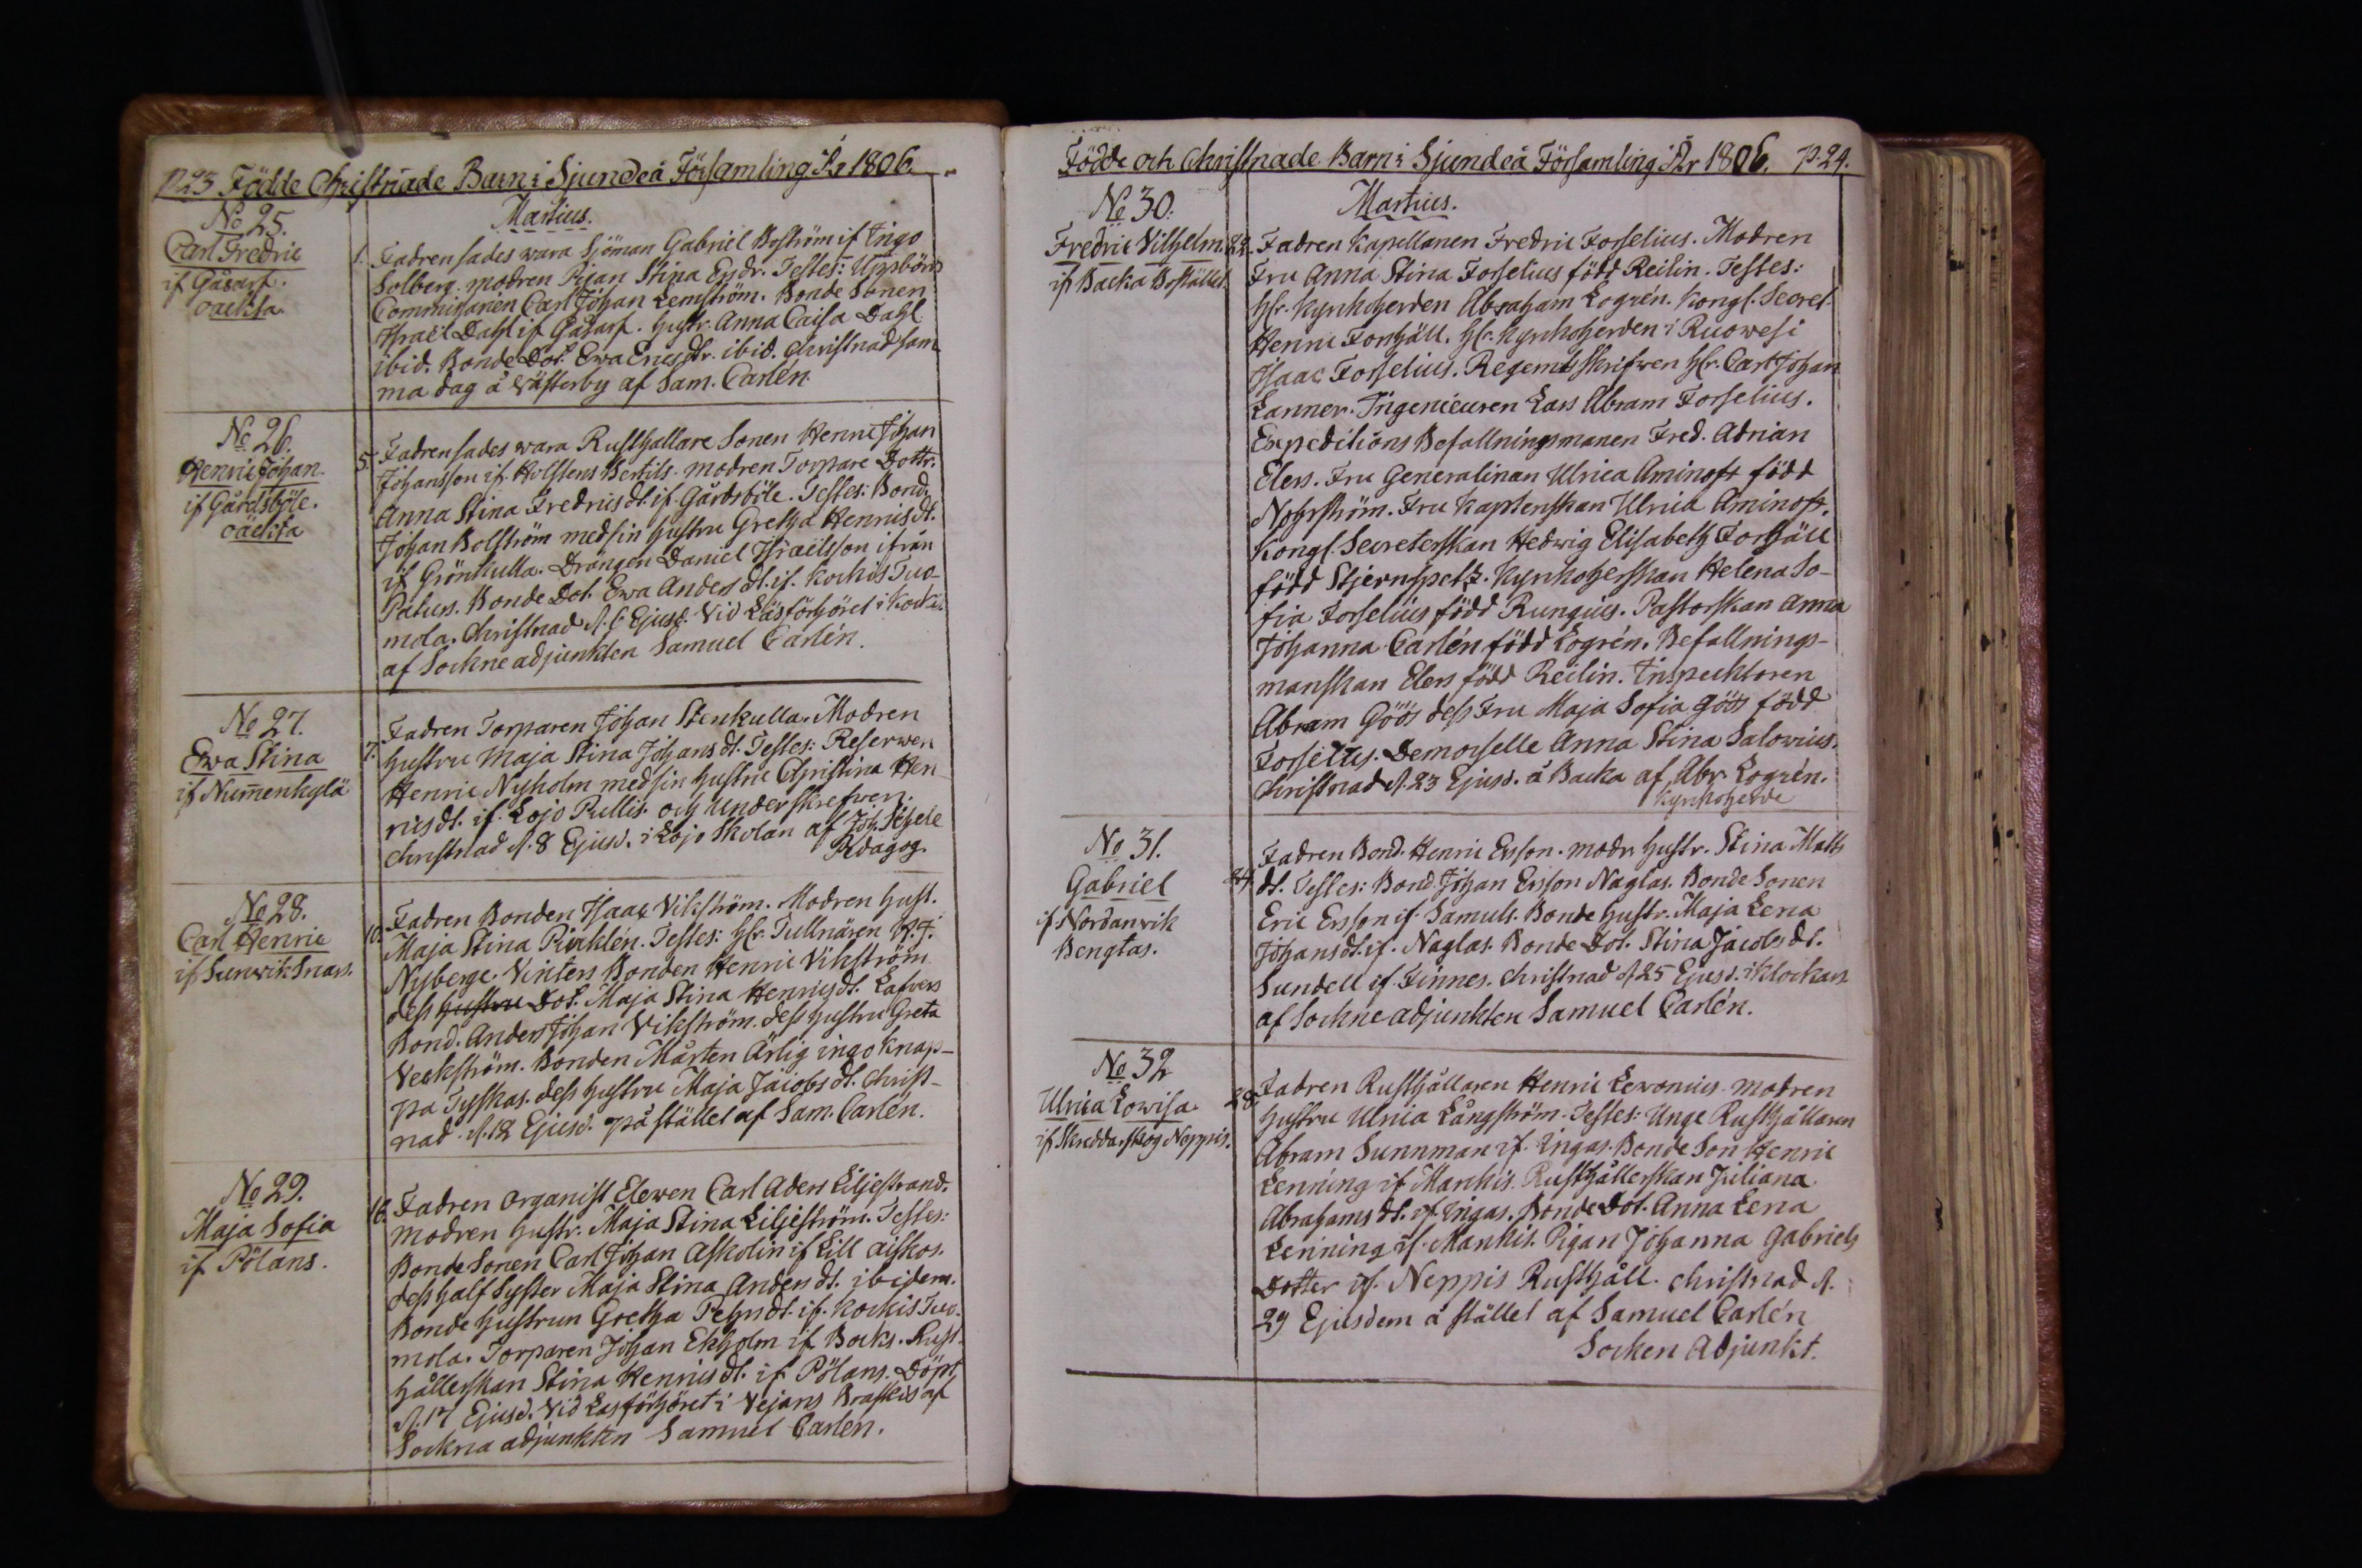 p. 23 Födde Christnade Barn i Sjundeå Församling År 1806.
Martius.
No 25.
Carl Fredric
if Gåsarf.
oäckta
1. Fadren sades wara Sjöman Gabriel Boström if Ingo
Solberg. modren Pigan Stina Endr. Testes: Uppbörds
Commissarien Carl Johan Lemström. Bonde Sonen
Israël Dahl if Gåsarf. hustr. Anna Caisa Dahl
ibid. Bonde Dot. Ewa Ericsdtr. ibid. Christnad sam
ma dag å Wästerby af Sam. Carlén.
No 26.
Henric Johan.
if Gårdsböle.
oäckta
5. Fadren sades wara Rusthållare Sonen Henric Johan
Johansson if Holstens Bertils. modren Torpare Dottr.
Anna Stina Fredrics dt. if Gårdsböle. Testes: Bond.
Johan Bolström med sin hustru Gretha Henrics dt.
if Grönkulla. Drängen Daniel Israëlsson ifrån
Palus. Bonde Dot. Ewa Anders dt. if. Kockis Tuo-
mola. Christnad d. 6 Ejusd. Vid Läsförhöret i Kockis
af Sockne adjunkten Samuel Carlén.
No 27.
Ewa Stina
if Nummenkylä
7. Fadren Torparen Johan Stenkulla. Modren
hustru Maja Stina Johans dt. Testes: Reserven
Henric Nyholm med sin hustru Christina Hen
rics dt. if. Lojo Pullis. och Underskrefwen.
Christnad d. 8 Ejusd. i Lojo Skolan af Joh.
Pedagog.
No 28.
Carl Henric
if Sunwik Snars.
10. Fadren Bonden Isaac Vikström. Modren hust.
Maja Stina Testes: Hr. Tullnären
Nyberge. Vinters Bonden Henric Vikström
dess hustru Dot. Maja Stina Henricsdt. Lafvers
Bond. Anders Johan Vikström. dess hustru Greta
Veckström. Bonden Mårten Ärlig ingo Knap-
pa Tyskas. dess hustru Maja Jacobs dt. Christ-
nad d. 12 Ejusd. på stället af Sam. Carlén.
No 29.
Maja Sofia
if Pölans.
16. Fadren Organist Elewen Carl Aders Liljestrand.
modren hustr. Maja Stina Liljeström. Testes:
Bonde Sonen Carl Johan Askolin if Lill
dess half Syster Maja Stina Anders dt. ibidem.
Bonde hustrun Gretha Pehrs dt. if. Kockis Tuo-
mola. Torparen Johan Ekholm if Bocks. Rust-
hållerskan Stina Henrics dt. if Pölans. Döpt
d. 17 Ejusd. Vid Läsförhöret i Vejans Braskis af
Sockna adjunkten Samuel Carlén.
Födde och Christnade Barn i Sjundeå Församling År 1806. p. 24.
Martius.
No 30.
Fredric Vilhelm.
if Backa Bostället.
22. Fadren Kapellanen Fredric Forselius. Modren
Fru Anna Stina Forselius född Reilin. Testes:
Hr. Kyrkoherden Abraham Logrén. Kongl. Secret.
Henric Forshäll. Hr. Kyrkoherden i Ruowesi
Isaac Forselius. Regemts skrifwen Hr. Carl Johan
Lanner. Ingenieuren Lars Abram Forselius.
Expeditions Befallningsmanen Fred. Adrian
Elers. Fru Generalinan Ulrica Aminoff född
Nohrström. Fru Kaptenskan Ulrica Aminoff.
Kongl. Secreterskan Hedwig Elisabeth Forshäll
född Stjernspetz. Kyrkoherskan Helena So-
fia Forselius född Rungius. Pastorskan Anna
Johanna Carlén född Logrén. Befallnings-
manskan Elers född Reilin. Inspecktoren
Abram Göös dess Fru Maja Sofia Göös född
Forselius. Demoiselle Anna Stina Salovius.
Christnad d. 23 Ejusd. å Backa af Abr. Logrén.
Kyrkoherde
No 31.
Gabriel
if Nordanvik
Bengtas.
24. Fadren Bond. Henric Ersson. modr. hustr. Stina Matts
dt. Testes: Bond. Johan Ersson Naglas. Bonde Sonen
Eric Ersson if. Samuls. Bonde hustr. Maja Lena
Johans dt. if. Naglas. Bonde Dot. Stina Jacobs dt.
Sundell if Finnes. Christnad d. 25 Ejusd. i klockars
af Sockne adjunkten Samuel Carlén.
No 32
Ulrica Lowisa.
if Skreddarskog Neppis.
28. Fadren Rusthållaren Henric Lewonius. modren
hustru Ulrica Långström. Testes: Unge Rusthållaren
Abram Sunnman if. Ingas. Bonde Son Henric
Lenning if Mankis. Rusthållerskan Juliana
Abrahams dt. if. Ingas. Bonde Dot. Anna Lena
Lenning if. Mankis. Pigan Johanna Gabriels
Dotter if. Neppis Rusthåll. Christnad d.
29 Ejusdem å stället af Samuel Carlén
Socken Adjunkt.